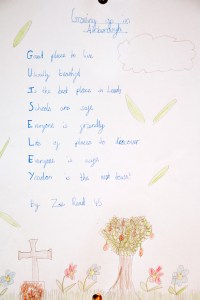 Growing up in
Good place to live
Usually beautiful
Is the best place in Leeds
Schools are
Everyone is friendly
Lots of places to discover
Everyone is
Yeadon is the next town!
By